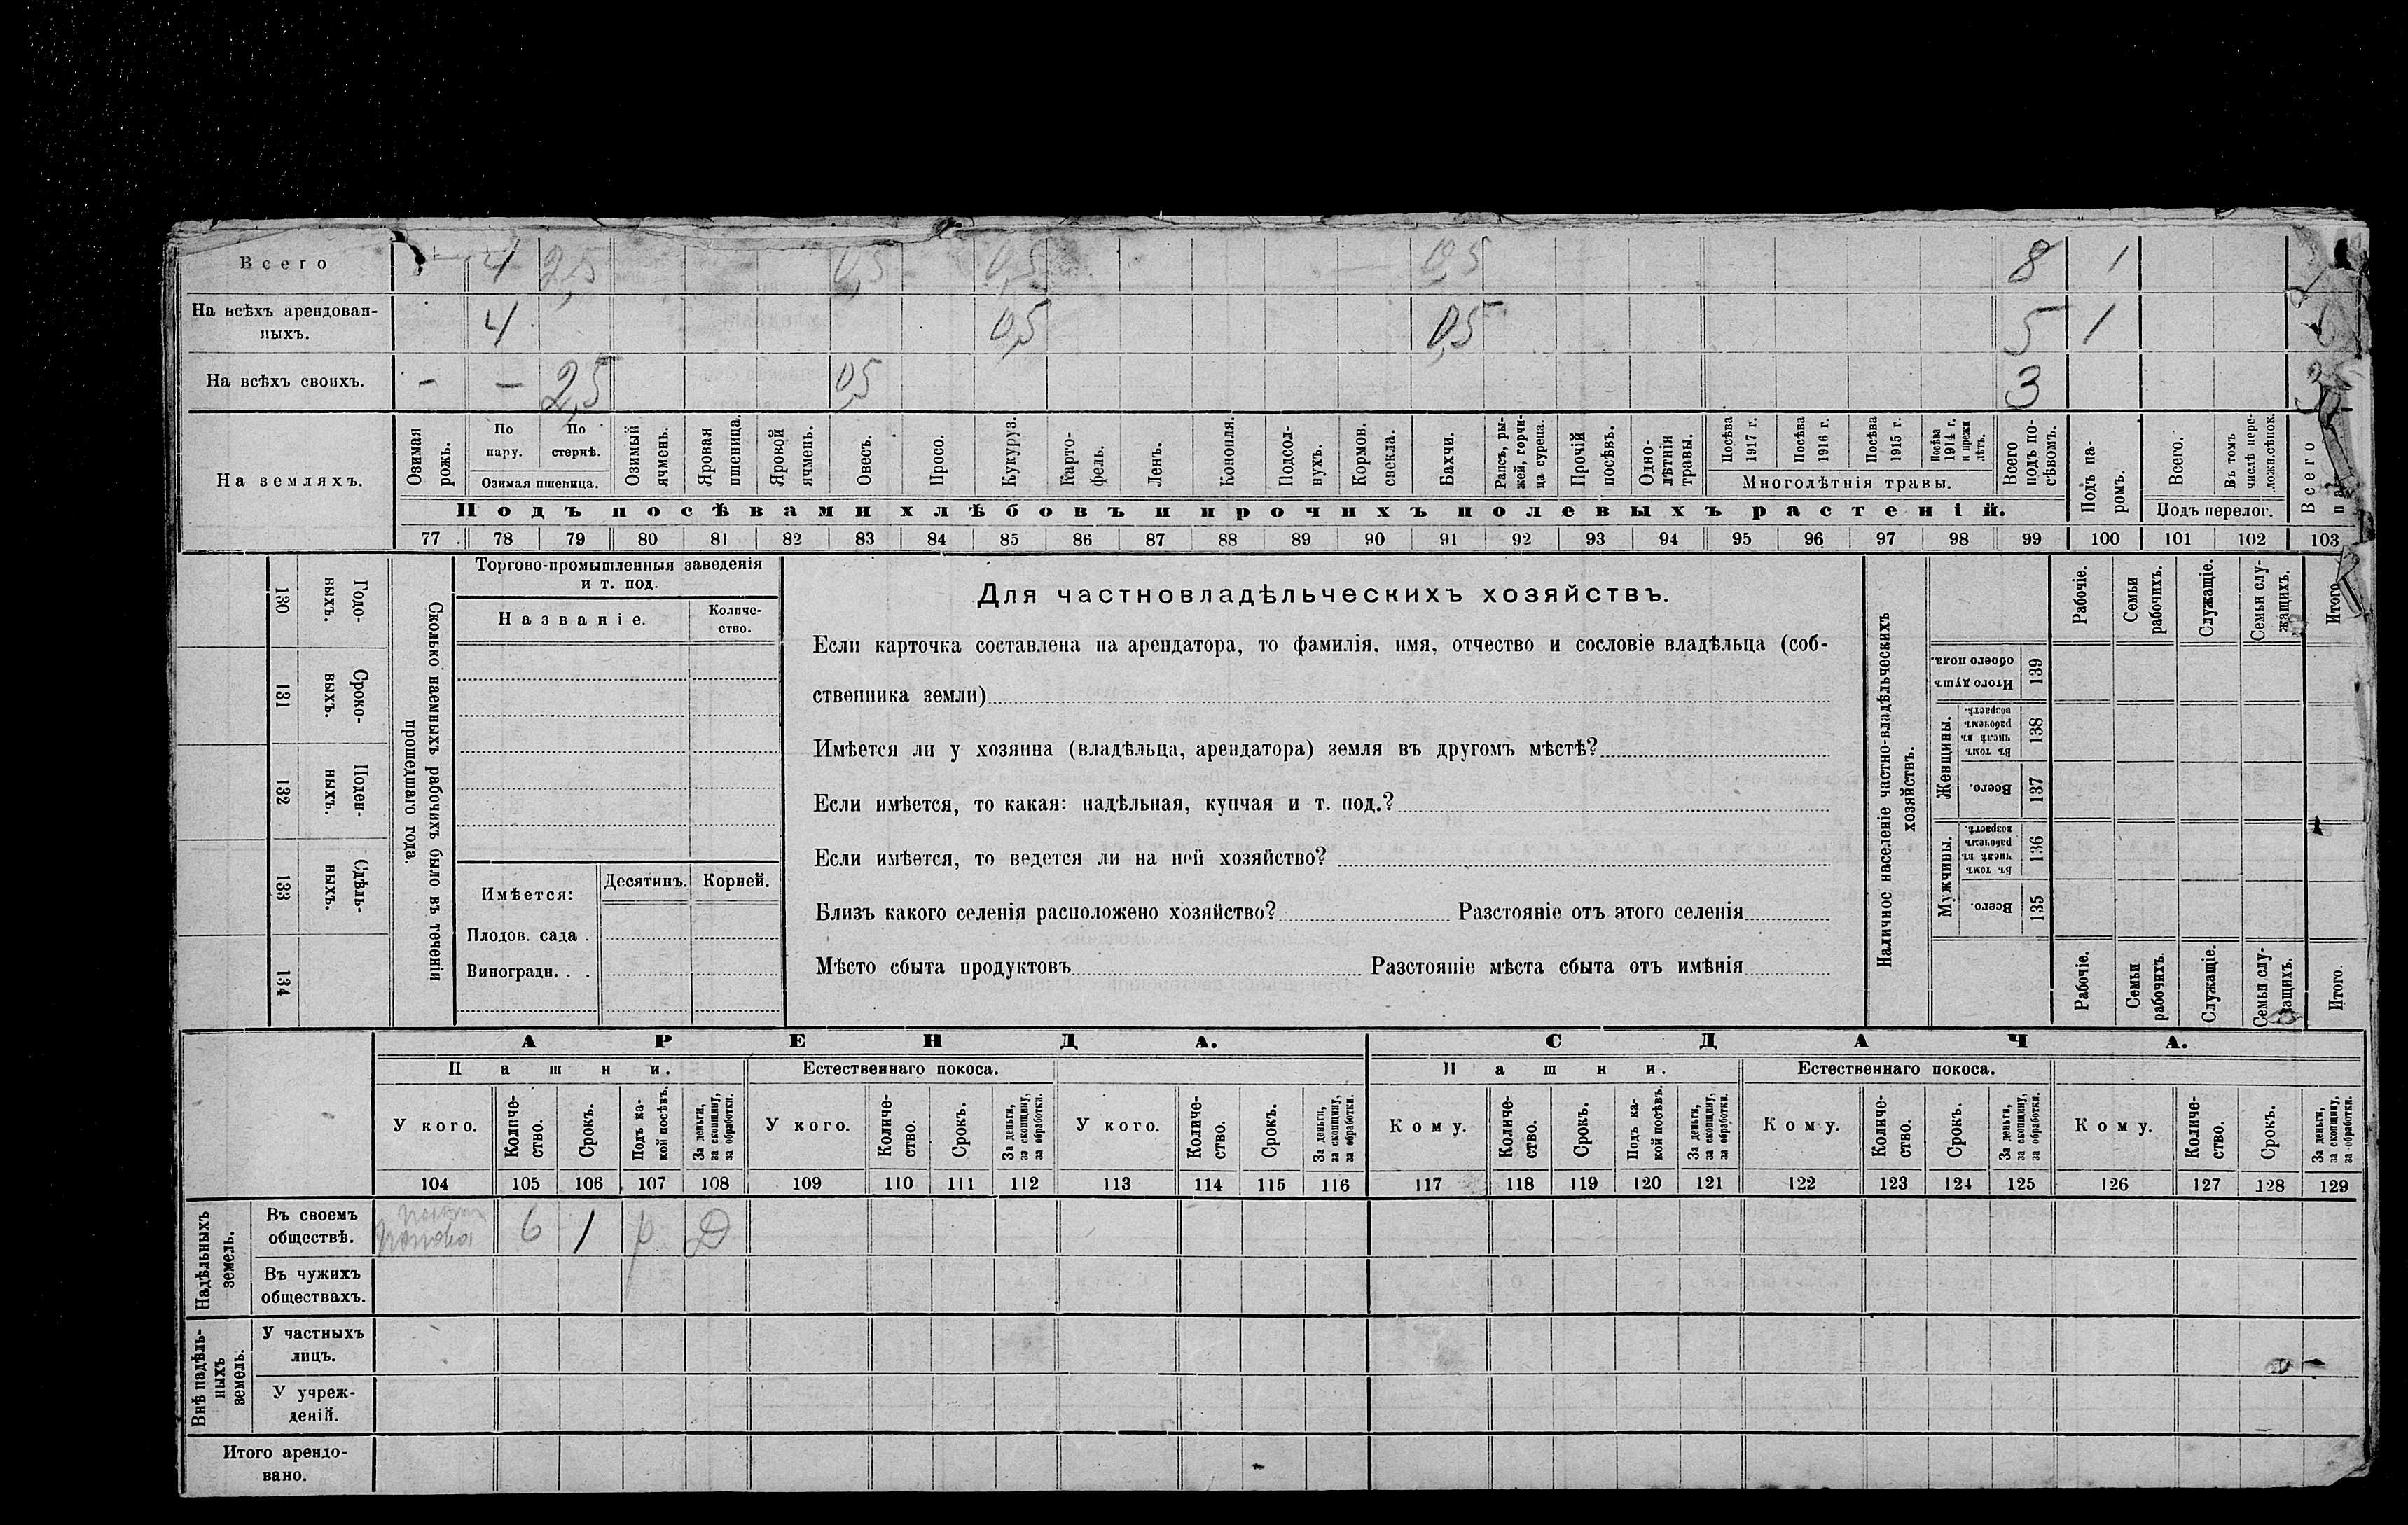 Всего 4 2,5 0,5 0,5 0,5 8 1
На всѣхъ арендован-
ныхъ. 4 0,5 0,5 5 1
На всѣхъ своихъ. - - 2,5 0,5 3 3
На земляхъ.
Озимая рожь.
По пару.
По стернѣ.
Озимая пшеница.
Озимый ячмень.
Яровая пшеница.
Яровой ячмень.
Овесъ.
Просо.
Кукуруз.
Карто-
фель.
Ленъ.
Конопля.
Подсол-
нухъ.
Кормов.
свекла.
Бахчи.
Рапсъ, ры-
жей, горчи-
ца сурепа.
Прочій
посѣвъ.
Одно-
лѣтнія
травы.
Посѣва
1917 г.
Посѣва
1916 г.
Посѣва
1915 г.
Посѣва
1914 г.
и прежн
лѣтъ.
Многолѣтнія травы.
Всего
подъ по-
сѣвомъ.
Подъ па-
ромъ.
Всего.
Въ томъ
числѣ пере-
ложн.сѣнок.
Подъ перелог.
Всего
Подъ посѣвами хлѣбовъ и прочихъ полевыхъ растеній.
77 78 79 80 81 82 83 84 85 86 87 88 89 90 91 92 93 94 95 96 97 98 99 100 101 102 103
Сколько наемныхъ рабочихъ было въ теченіи
прошедшаго года.
Годо-
выхъ.
130
Сроко-
выхъ.
131
Поден-
ныхъ.
132
Сдѣль-
ныхъ.
133
134
Торгово-промышленныя заведенія
и т. под.
Названіе.
Количе-
ство.
Имѣется:
Десятинъ.
Корней.
Плодов. сада .
Виноградн. . .
Для частновладѣльческихъ хозяйствъ.
Если карточка составлена на арендатора, то фамилія, имя, отчество и сословіе владѣльца (соб-
ственника земли)
Имѣется ли у хозяина (владѣльца, арендатора) земля въ другомъ мѣстѣ?
Если имѣется, то какая: надѣльная, купчая и т. под.?
Если имѣется, то ведется ли на ней хозяйство?
Близъ какого селенія расположено хозяйство? Разстояніе отъ этого селенія
Мѣсто сбыта продуктовъ Разстояніе мѣста сбыта отъ имѣнія
Наличное населеніе частно-владѣльческихъ
хозяйствъ.
Рабочіе.
Семьи
рабочихъ.
Служащіе.
Семьи слу-
жащихъ.
Итого
Итого душъ
обоего пола.
139
Женщины.
Въ томъ
числѣ въ
рабочемъ
возрастѣ.
138
Всего.
137
Мужчины.
Въ томъ
числѣ въ
рабочемъ
возрастѣ.
136
Всего.
135
Рабочіе.
Семьи
рабочихъ.
Служащіе.
Семьи слу-
жащихъ.
Итого.
АРЕНДА.
СДАЧА.
Пашни.
Естественнаго покоса.
Пашни.
Естественнаго покоса.
У кого.
Количе-
ство.
Срокъ.
Подъ ка-
кой посѣвъ.
За деньги,
за скопщину,
за обработки.
У кого.
Количе-
ство.
Срокъ.
За деньги,
за скопщину,
за обработки.
У кого.
Количе-
ство.
Срокъ.
За деньги,
за скопщину,
за обработки.
Кому.
Количе-
ство.
Срокъ.
Подъ ка-
кой посѣвъ.
За деньги,
за скопщину,
за обработки.
Кому.
Количе-
ство.
Срокъ.
За деньги,
за скопщину,
за обработки.
Кому.
Количе-
ство.
Срокъ.
За деньги,
за скопщину,
за обработки.
104 105 106 107 108 109 110 111 112 113 114 115 116 117 118 119 120 121 122 123 124 125 126 127 128 129
Надѣльныхъ
земель.
Въ своемъ
обществѣ. 6 1 р Д
Въ чужихъ
обществахъ.
Внѣ надѣль-
ныхъ
земель.
У частныхъ
лицъ.
У учреж-
деній.
Итого арендо-
вано.